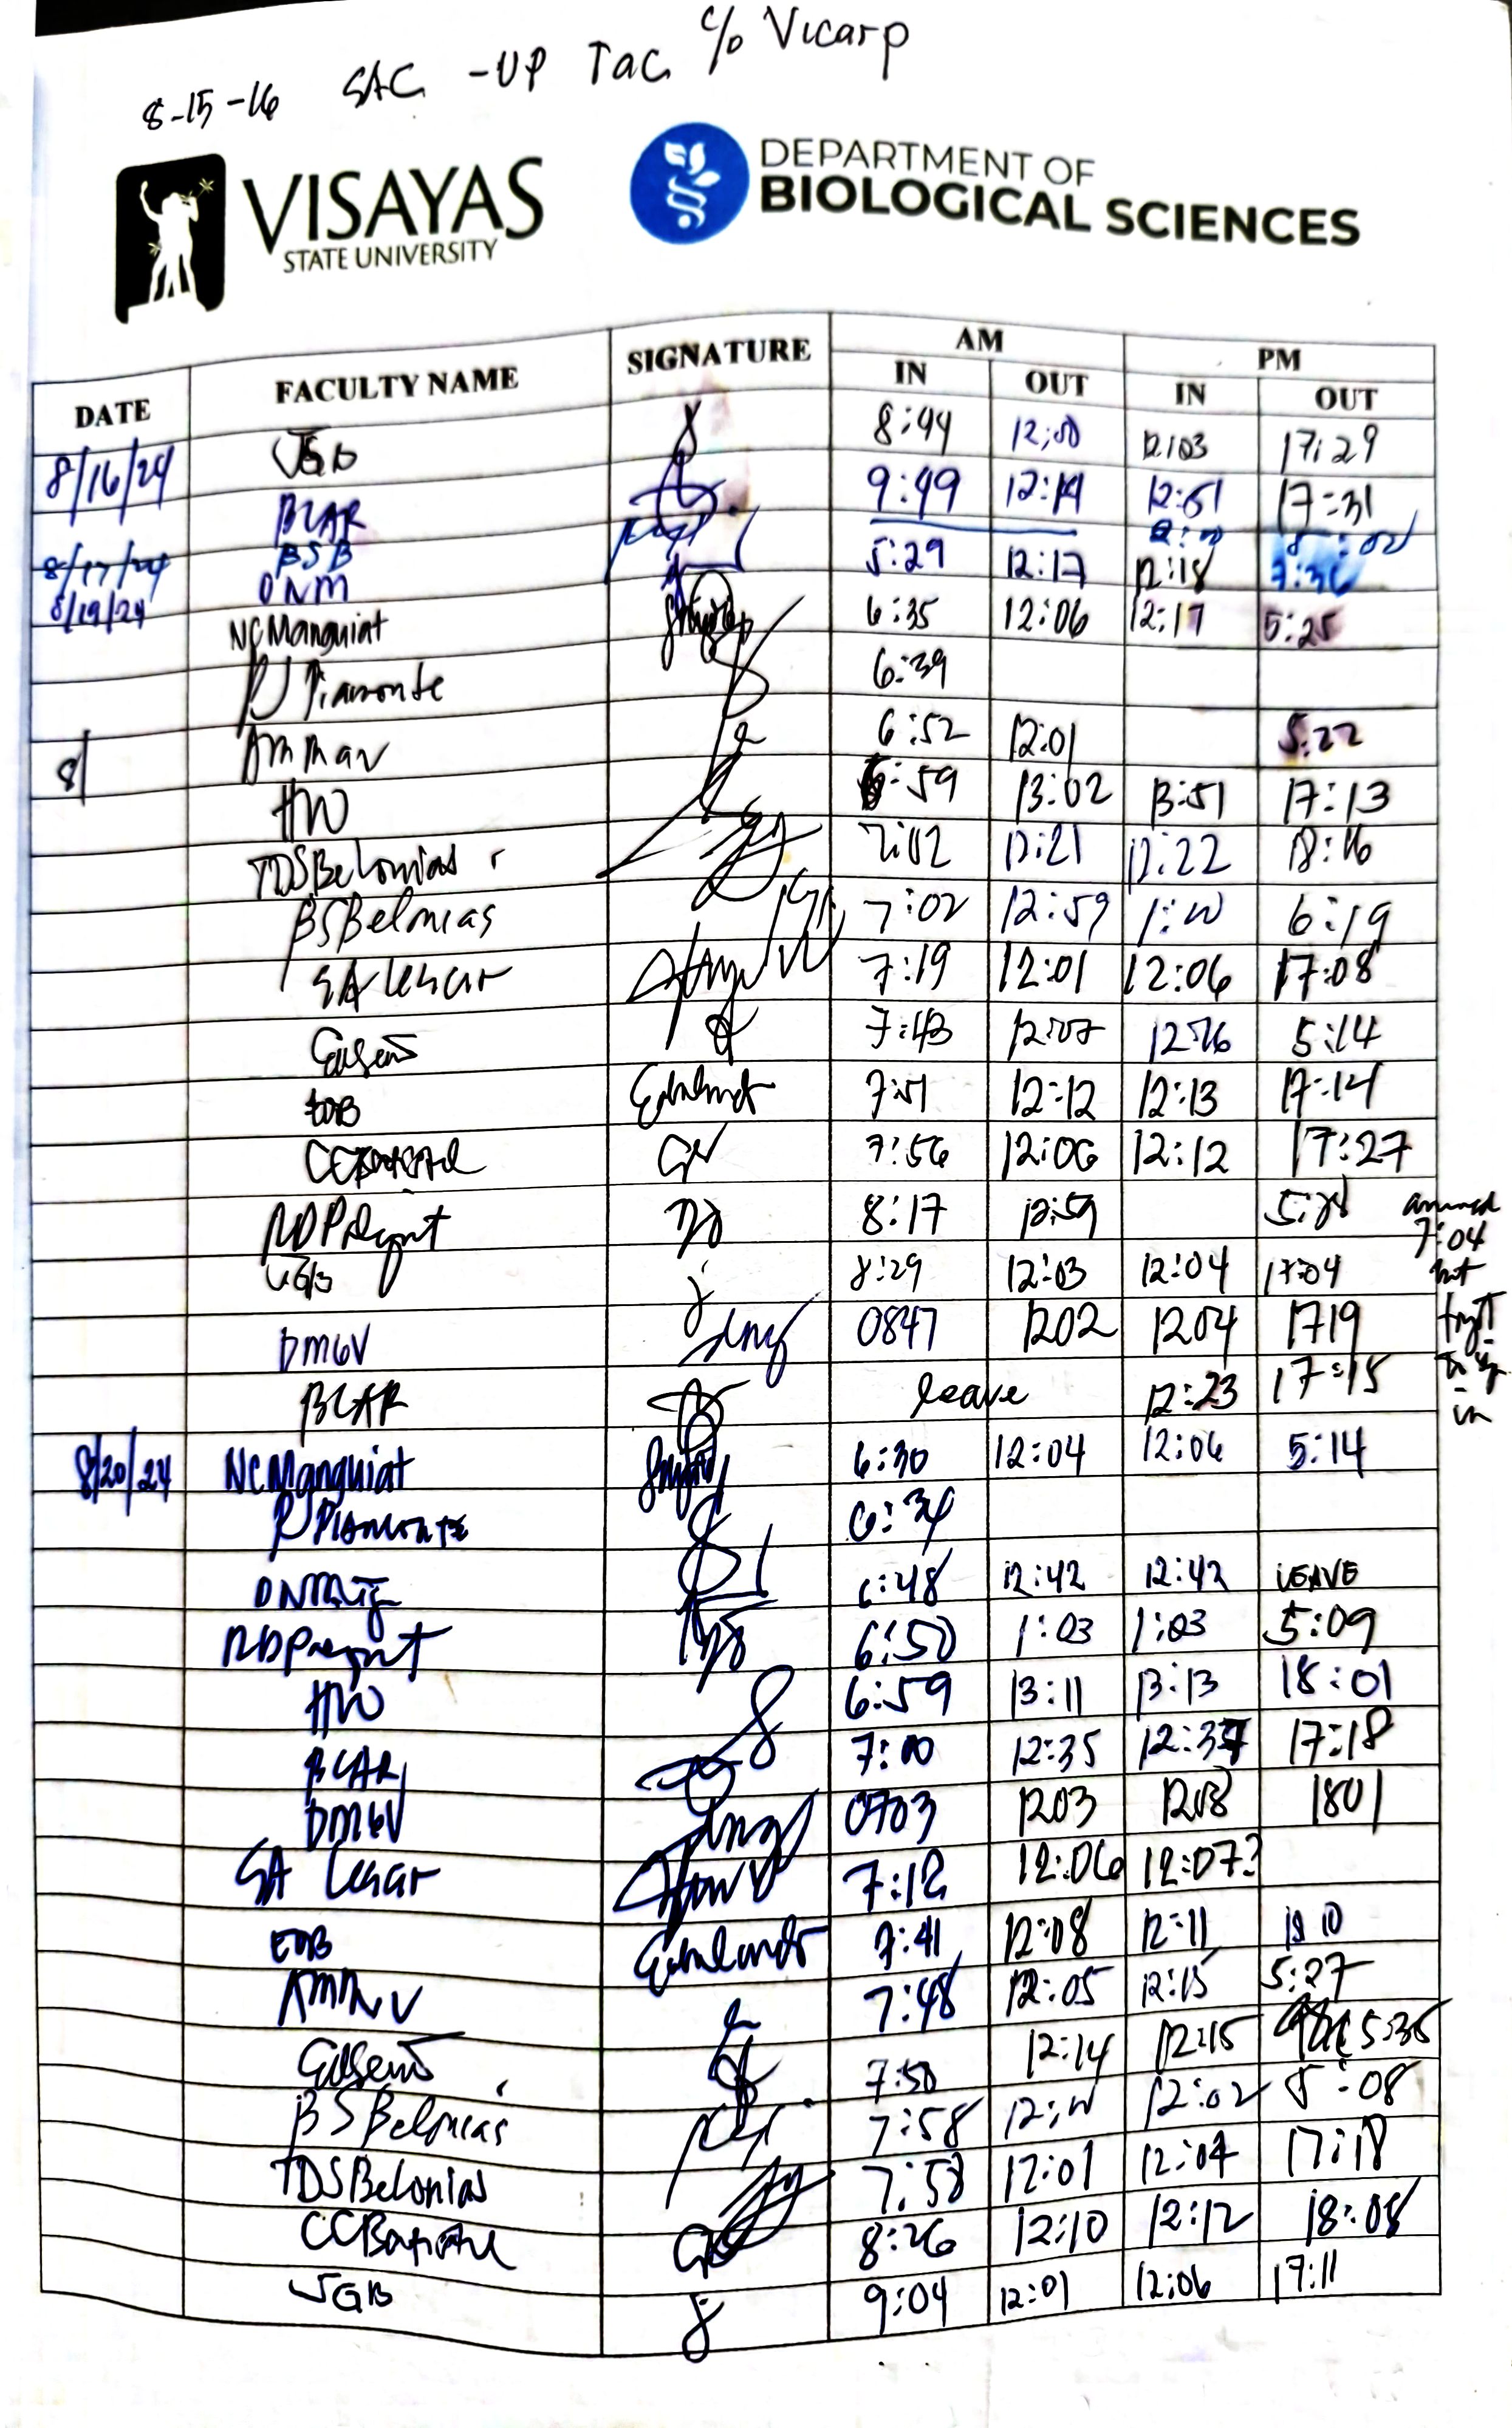 8-15-16 SAC -UP Tac c/o Vicarp
VISAYAS
STATE UNIVERSITY
DEPARTMENT OF
BIOLOGICAL SCIENCES
DATE FACULTY NAME SIGNATURE AM PM
IN OUT IN OUT
8/16/24 JGB 8:44 12:00 12:03 17:29
BCAR 9:49 12:14 12:51 17:31
8/17/24 BSB
8/19/24 DNM 5:29 12:17 12:18 7:36
NCManguiat 6:35 12:06 12:17 5:25
PJ Piamonte 6:39
8/ 6:52 12:01 5:22
HW 6:59 13:02 13:51 17:13
TDSBelonias 7:02 12:21 12:22 18:16
BSBelonias 7:02 12:59 1:00 6:19
SA Lesar 7:19 12:01 12:06 17:08
7:43 12:07 12:16 5:14
EOB 7:51 12:12 12:13 17:14
7:56 12:06 12:12 17:27
8:17 12:59 arrived
7:04
but
forgot
to sign
in
JGB 8:29 12:03 12:04 17:04
DMGV 0847 1202 1204 1719
BCAR leave 12:23 17:15
8/20/24 NCManguiat 6:30 12:04 12:06 5:14
PJ Piamonte 6:34
6:48 12:42 12:42 LEAVE
6:50 1:03 1:03 5:09
HW 6:59 13:11 13:13 18:01
BCAR 7:00 12:35 12:37 17:18
DMGV 0703 1203 1208 1801
SA Lesar 7:12 12:06 12:07
EOB 7:41 12:08 12:11
7:48 12:05 12:15 5:27
7:50 12:14 12:15 5:35
BSBelonias 7:58 12:00 12:02 5:08
TDSBelonias 7:58 12:01 12:04 17:18
8:26 12:10 12:12 18:08
JGB 9:04 12:01 12:06 17:11